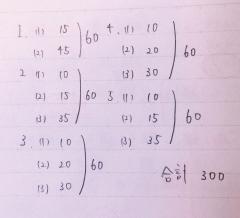 1. (1) 15
(2) 45
60
2. (1) 10
(2) 15
(3) 35
60
3. (1) 10
(2) 20
(3) 30
60
4. (1) 10
(2) 20
(3) 30
60
5. (1) 10
(2) 15
(3) 35
60
合計 300